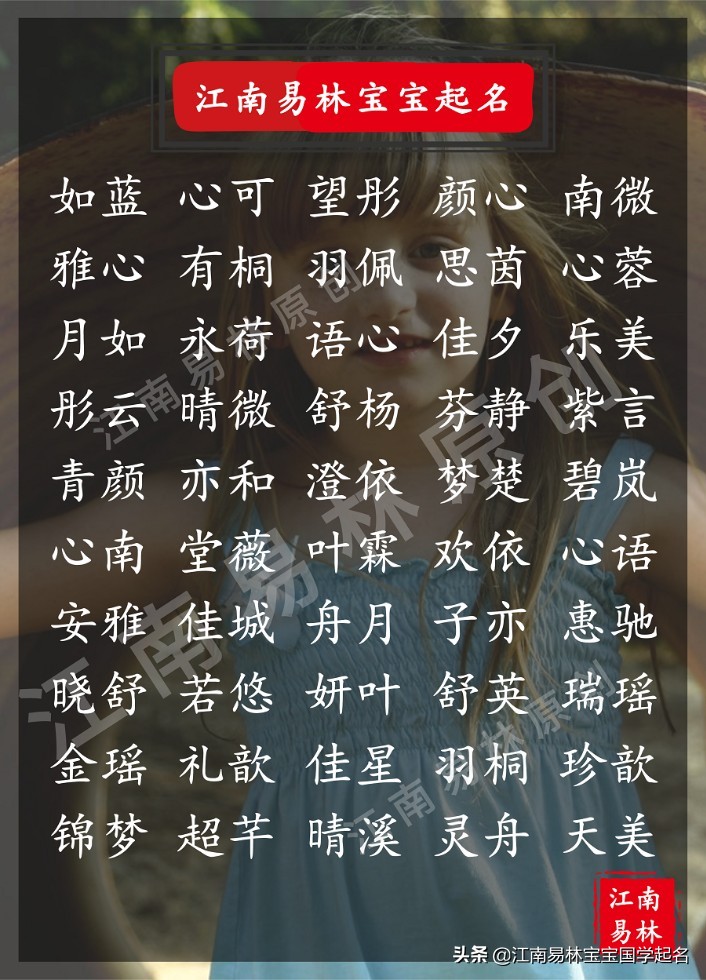 江南易林宝宝起名
如蓝 心可 望彤 颜心 南微
雅心 有桐 羽佩 思茵 心蓉
月如 永荷 语心 佳夕 乐美
彤云 晴微 舒杨 芬静 紫言
青颜 亦和 澄依 梦楚 碧岚
心南 堂薇 叶霖 欢依 心语
安雅 佳城 舟月 子亦 惠驰
晓舒 若悠 妍叶 舒英 瑞瑶
金瑶 礼歆 佳星 羽桐 珍歆
锦梦 超芊 晴溪 灵舟 天美
江南易林原创
江南易林原创
江南易林原创
江南
易林
头条 @江南易林宝宝国学起名